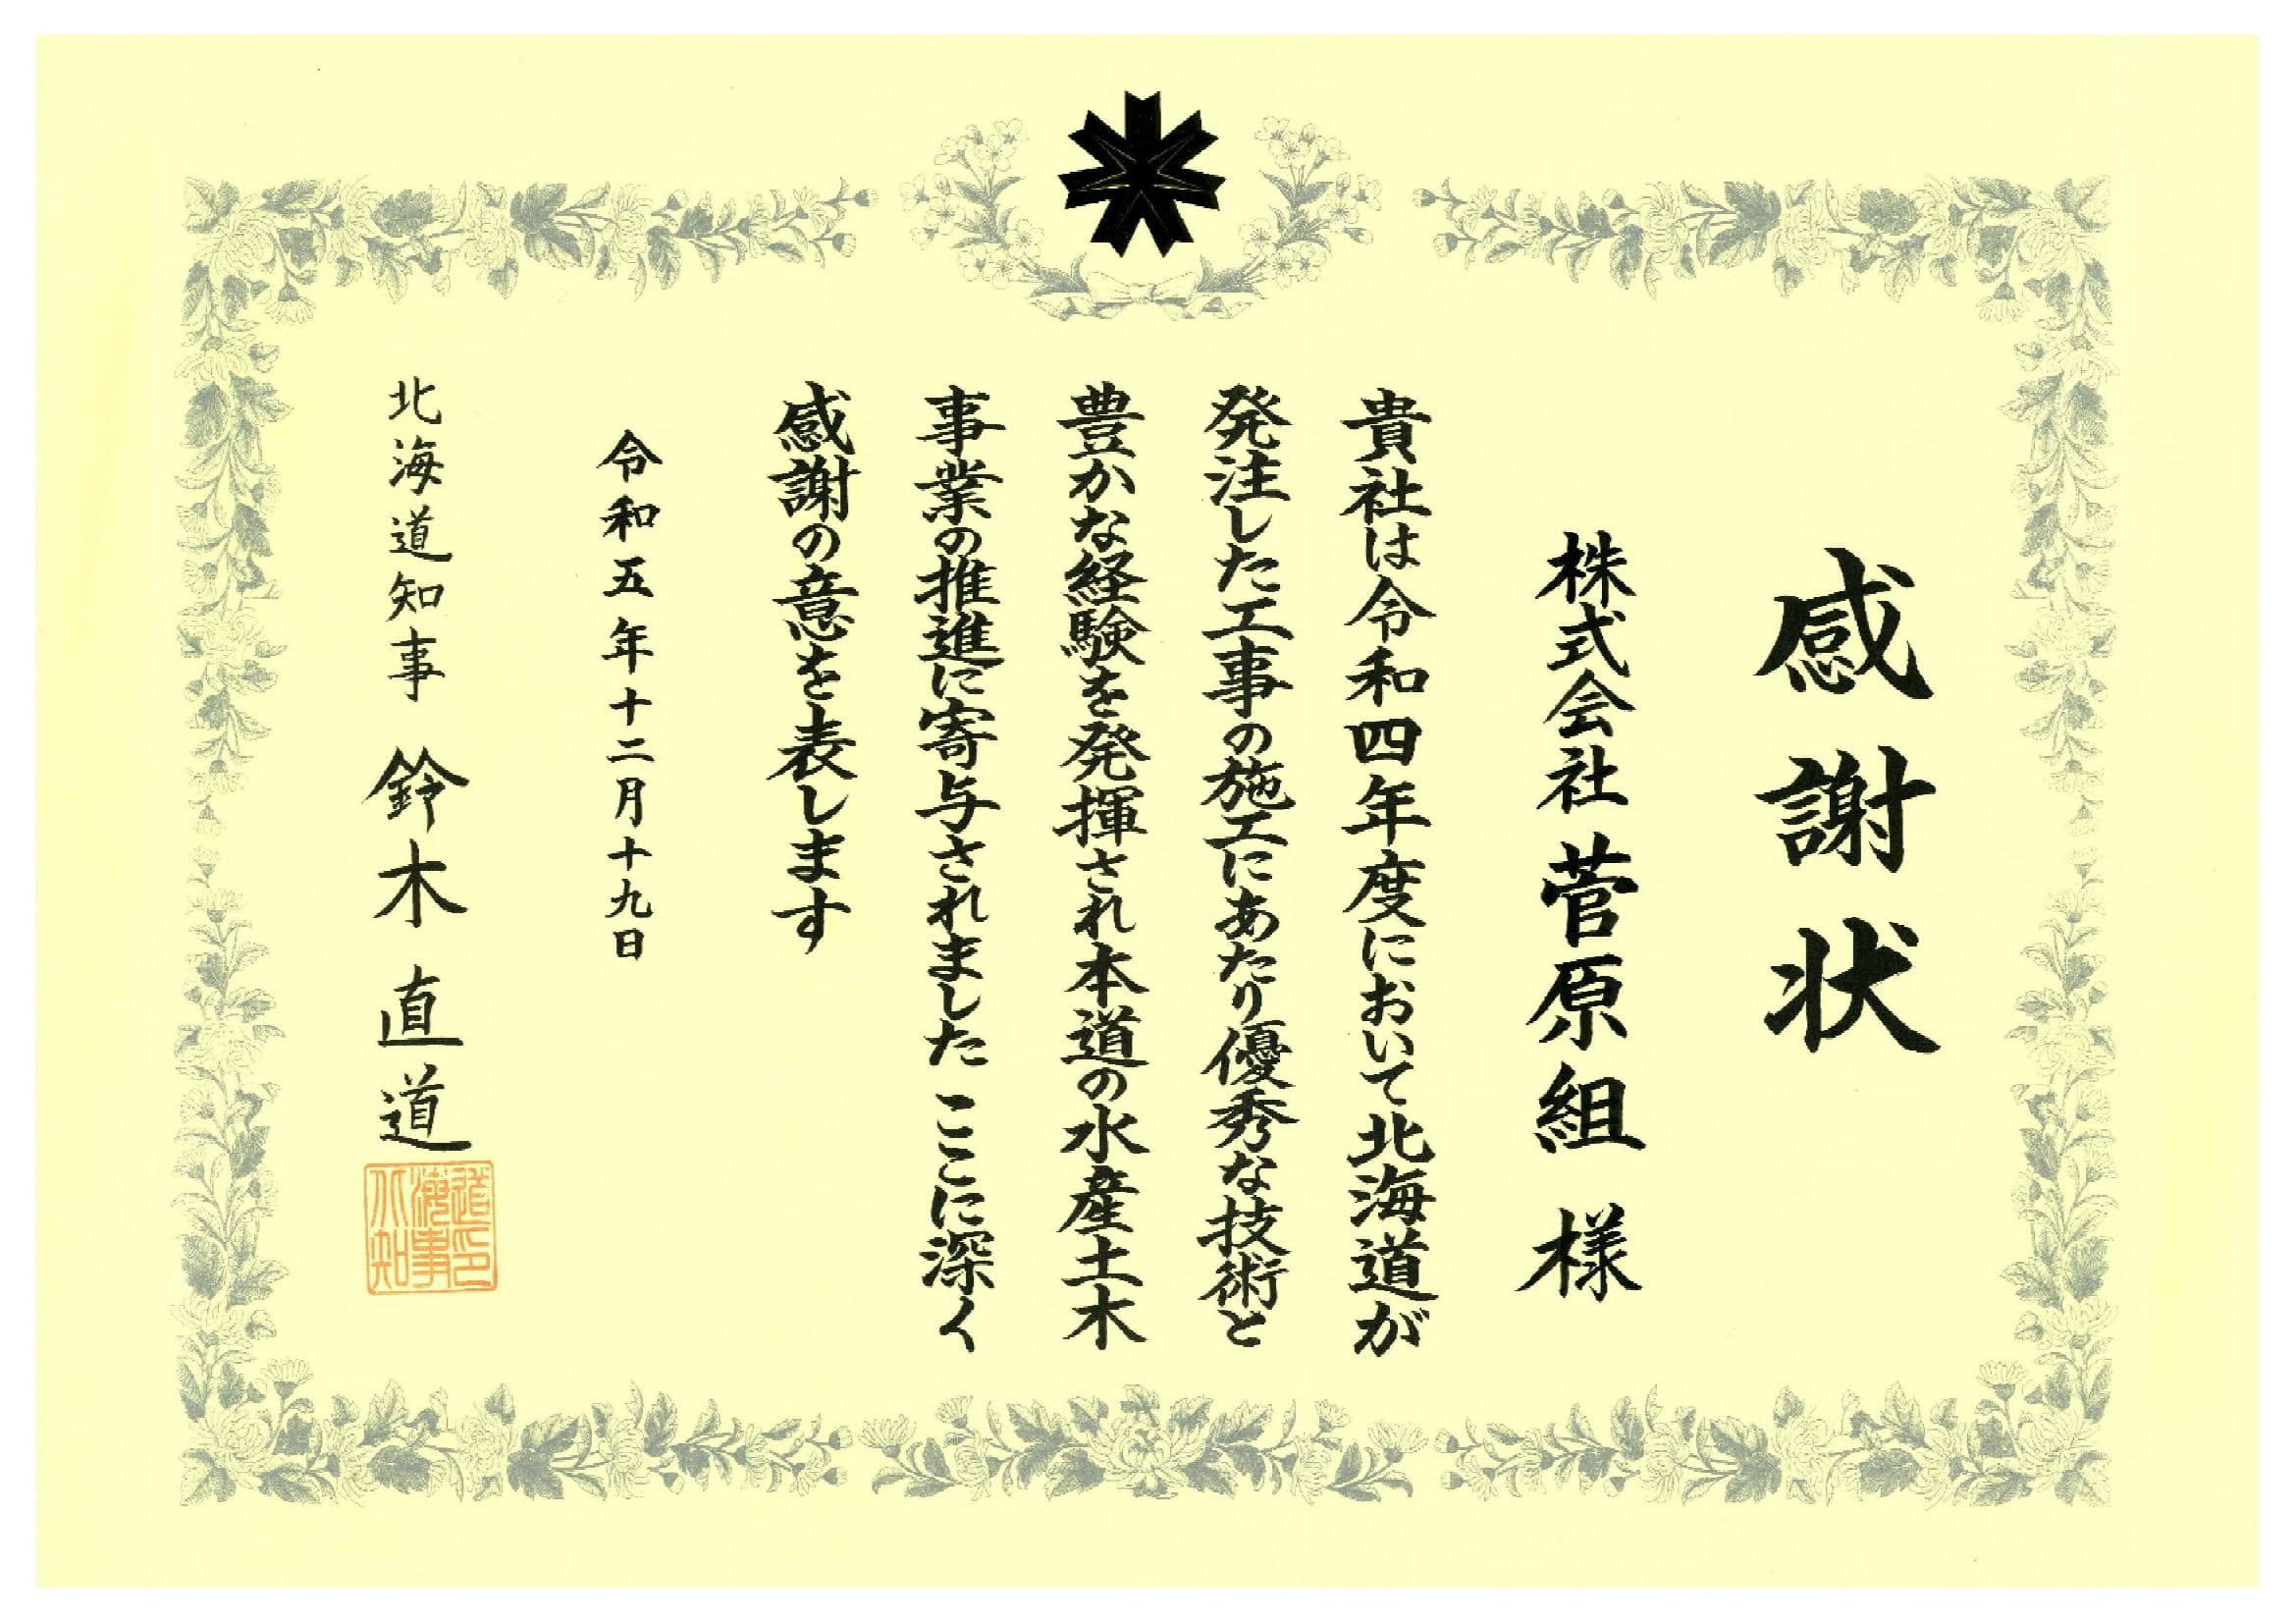 感謝状
株式会社 菅原組 様
貴社は令和四年度において北海道が
発注した工事の施工にあたり優秀な技術と
豊かな経験を発揮され本道の水産土木
事業の推進に寄与されました ここに深く
感謝の意を表します
令和五年十二月十九日
北海道知事 鈴木直道
北海道知事印